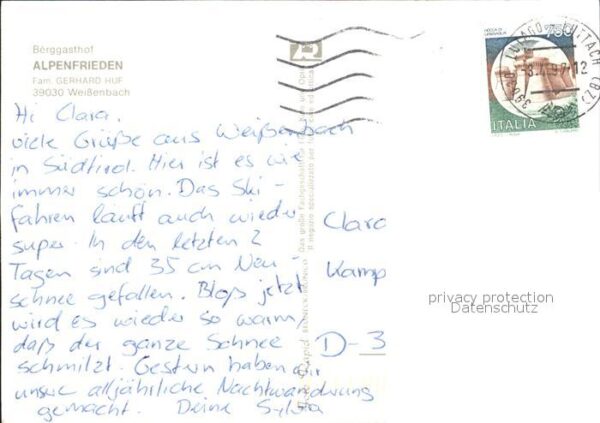 Berggasthof
ALPENFRIEDEN
Fam. GERHARD HUF
39030 Weißenbach
Hi Clara,
viele Grüße aus Weißenbach
in Südtirol. Hier ist es wie
immer schön. Das Ski-
fahren läuft auch wieder
super. In den letzten 2
Tagen sind 35 cm Neu-
schnee gefallen. Bloß jetzt
wird es wieder so warm,
daß der ganze Schnee
schmilzt. Gestern haben wir
unsere alljährliche Nachtwanderung
gemacht. Deine Sylvia
Clara
Kamp
D-3
750
ITALIA
LUTTACH (BZ)
Das große Fachgeschäft
Il negozio specializzato per
privacy protection
Datenschutz